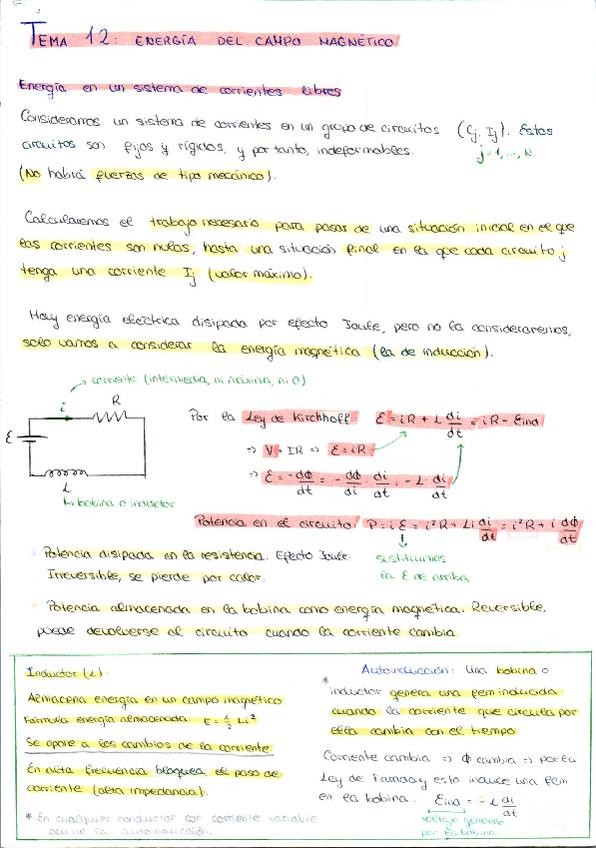 TEMA 12: ENERGÍA DEL CAMPO MAGNÉTICO
Energía en un sistema de corrientes libres
Consideramos un sistema de corrientes en un grupo de circuitos (Cj, Ij). Estos
j=1,...,N.
circuitos son fijos y rígidos, y por tanto, indeformables.
(No habrá fuerzas de tipo mecánico).
Calcularemos el trabajo necesario para pasar de una situación inicial en el que
las corrientes son nulas, hasta una situación final en la que cada circuito j
tenga una corriente Ij (valor máximo).
Hay energía eléctrica disipada por efecto Joule, pero no la consideraremos,
solo vamos a considerar la energía magnética (la de inducción).
corriente (intermedia, ni máxima, ni 0)
i
R
ε
L
bobina o inductor
Por la Ley de Kirchhoff: ε = iR + L di/dt = iR - εind
⇒ V = IR ⇒ ε = iR
⇒ ε = -dΦ/dt = -dΦ/di di/dt = -L · di/dt
Potencia en el circuito: P = iε = i²R + Li di/dt = i²R + i dΦ/dt
sustituimos
la ε de arriba
Potencia disipada en la resistencia. Efecto Joule.
Irreversible, se pierde por calor.
Potencia almacenada en la bobina como energía magnética. Reversible,
puede devolverse al circuito cuando la corriente cambia.
Inductor (L):
Almacena energía en un campo magnético
Fórmula energía almacenada: E = 1/2 Li²
Se opone a los cambios de la corriente
En alta frecuencia bloquea el paso de
corriente (alta impedancia).
* En cualquier conductor con corriente variable
ocurre la autoinducción.
* Autoinducción: Una bobina o
inductor genera una fem inducida
cuando la corriente que circula por
ella cambia con el tiempo
Corriente cambia ⇒ Φ cambia ⇒ por la
Ley de Faraday esto induce una fem
en la bobina. εind = -L di/dt
voltaje generado
por la bobina